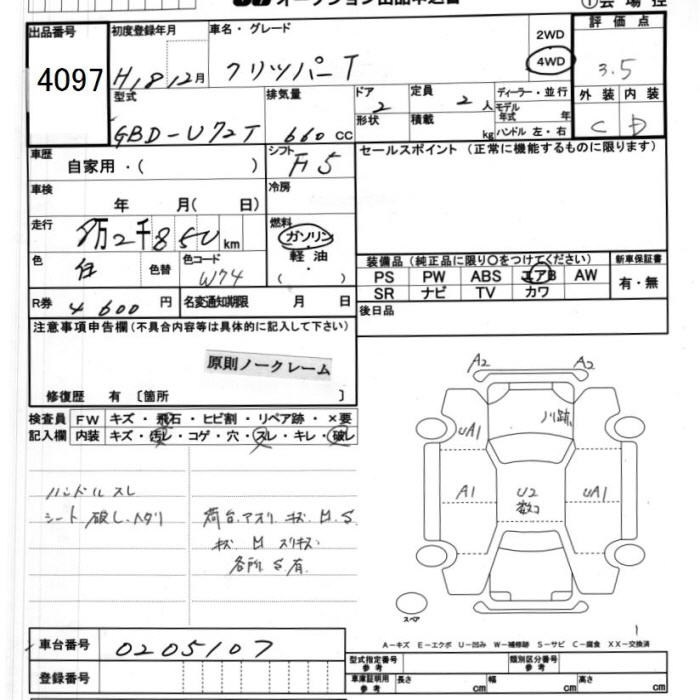 オークション出品申込書
①会場控
出品番号 初度登録年月 車名・グレード 2WD 評価点
4097 H18 12月 クリッパー T 4WD 3.5
型式 排気量 ドア 定員 ディーラー・並行 外装 内装
GBD-U72T 660 CC 2 2 人 モデル年式 年 C D
形状 積載 kg ハンドル 左・右
車歴 シフト セールスポイント (正常に機能するものに限ります)
自家用・( ) F5
車検 冷房
年 月( 日)
走行 燃料
8万2千850 km ガソリン
色 色替 色コード 軽油
白 W74 ( )
装備品 (純正品に限り○をつけてください) 新車保証書
PS PW ABS エアB AW 有・無
SR ナビ TV カワ
R券 4600 円 名変通知期限 月 日
後日品
注意事項申告欄 (不具合内容等は具体的に記入して下さい)
原則ノークレーム
修復歴 有 [箇所 ]
検査員 FW キズ・飛石・ヒビ割・リペア跡・×要
記入欄 内装 キズ・汚レ・コゲ・穴・スレ・キレ・破レ
ハンドル スレ
シート 破レ、ヘタリ
荷台、アオリ キズ 凹 S
キズ 凹 スリキズ
各所 S 有
A2 A2
UA1
A1 U2 UA1
スペア
1
A-キズ E-エクボ U-凹み W-補修跡 S-サビ C-腐食 XX-交換済
車台番号 0205107
登録番号
型式指定番号 参考 類別区分番号 参考
車庫証明用 参考 長さ cm 幅 cm 高さ cm